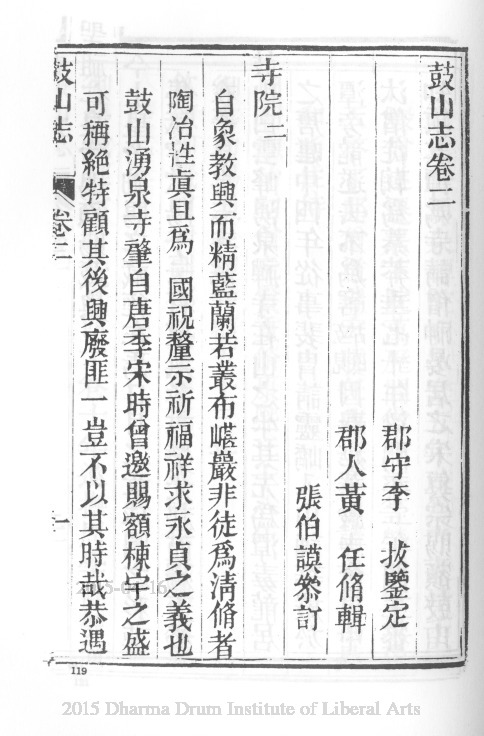 鼓山志卷二
郡守李　拔鑒定
郡人黃　任脩輯
張伯謨叅訂
寺院二
自象教興而精藍蘭若叢布巗嚴非徒爲清脩者
陶冶性真且爲　國祝釐示祈福祥求永貞之義也
鼓山湧泉寺肇自唐季宋時曾邀賜額棟宇之盛
可稱絕特顧其後興廢匪一豈不以其時哉恭遇
鼓山志
卷二
一
119
2015 Dharma Drum Institute of Liberal Arts